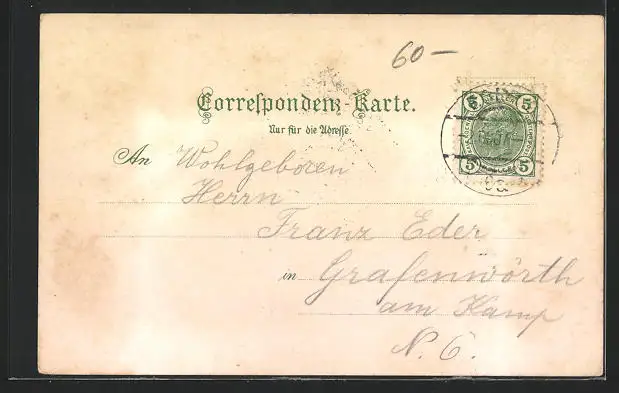 60–
Correspondenz-Karte.
Nur für die Adresse
An Wohlgeboren
Herrn
Franz Eder
in Grafenwörth
am Kamp
N. 6.
5 5
5 5